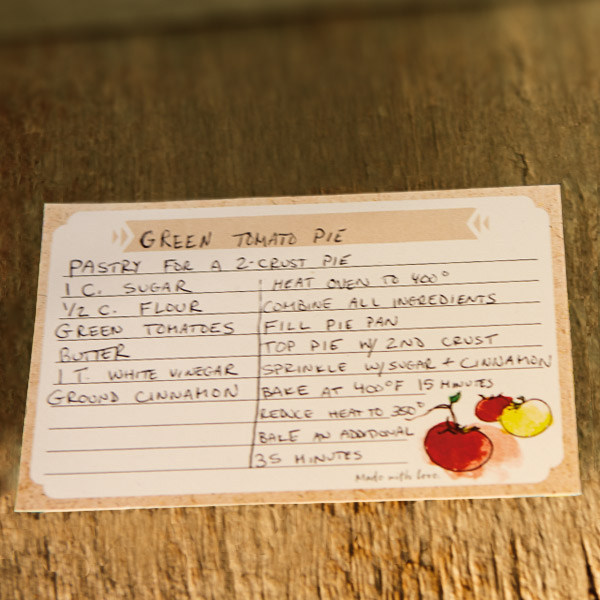 GREEN TOMATO PIE
PASTRY FOR A 2-CRUST PIE
1 C. SUGAR
1/2 C. FLOUR
GREEN TOMATOES
BUTTER
1 T. WHITE VINEGAR
GROUND CINNAMON
HEAT OVEN TO 400°
COMBINE ALL INGREDIENTS
FILL PIE PAN
TOP PIE W/ 2ND CRUST
SPRINKLE W/SUGAR + CINNAMON
BAKE AT 400°F 15 MINUTES
REDUCE HEAT TO 350°
BAKE AN ADDITIONAL
35 MINUTES
Made with love.